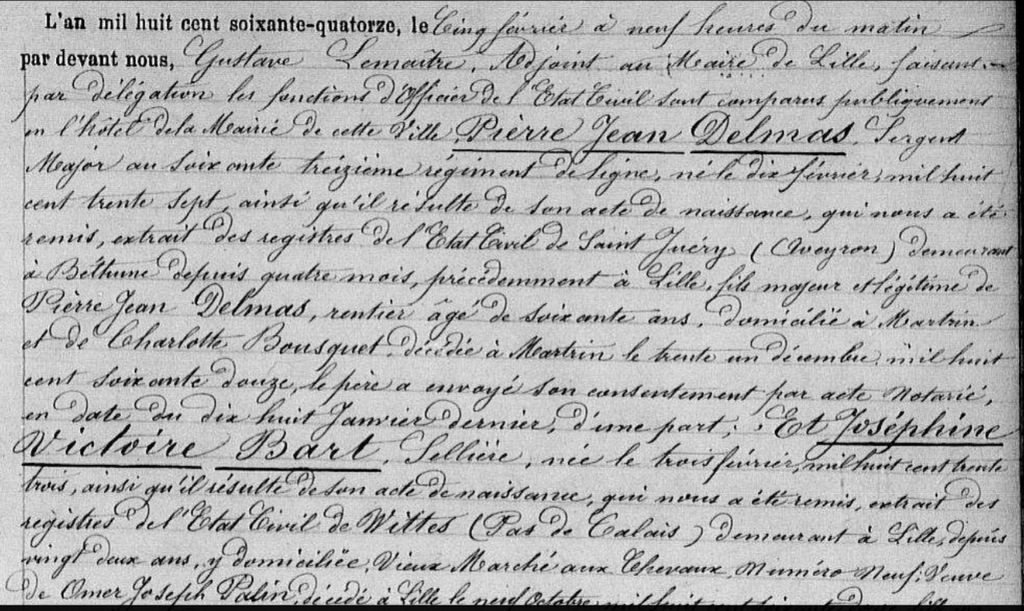 L'an mil huit cent soixante-quatorze, le Cinq février à neuf heures du matin
par devant nous, Gustave Lemaître, Adjoint au Maire de Lille, faisant
par délégation les fonctions d'Officier de l'Etat Civil sont comparus publiquement
en l'hôtel de la Mairie de cette Ville Pièrre Jean Delmas, Sergent
Major au soixante treizième régiment de ligne, né le dix février, mil huit
cent trente sept, ainsi qu'il résulte de son acte de naissance, qui nous a été
remis, extrait des registres de l'Etat Civil de Saint Juéry (Aveyron) demeurant
à Béthune depuis quatre mois, précédemment à Lille, fils majeur et légitime de
Pièrre Jean Delmas, rentier âgé de soixante ans, domicilié à Martrin
et de Charlotte Bousquet, décédée à Martrin le trente un décembre, mil huit
cent soixante douze, le père a envoyé son consentement par acte Notarié,
en date du dix huit Janvier dernier, d'une part; Et Joséphine
Victoire Bart, Sellière, née le trois février, mil huit cent trente
trois, ainsi qu'il résulte de son acte de naissance, qui nous a été remis, extrait des
registres de l'Etat Civil de Wittes (Pas de Calais) demeurant à Lille, depuis
vingt deux ans, y domiciliée, Vieux Marché aux Chevaux, Numéro Neuf; Veuve
de Omer Joseph Palin, décédé à Lille le neuf Octobre mil huit cent